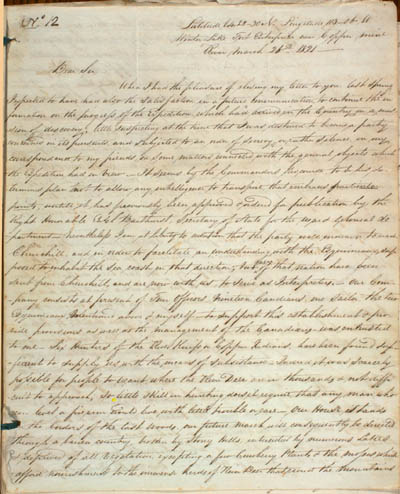 No 12
Latitude 64.28.30 N. Longitude 113.06 W
Winter Lake Fort Enterprise near Copper mine
River, March 26th 1821
Dear Sir
When I had the pleasure of closing my letter to you last Spring
I expected to have had also the satisfaction in a future communication to continue the in
formation on the progress of the Expedition which had arrived in the Country on a mis
sion of discovery, little suspecting at the time that I was destined to become a party
concerned in its pursuits and subjected to an order of secrecy in the silence on my
correspondence to my friends on some matters connected with the general objects which
the Expedition has in view — It seems by the Commanders
points, until it has previously been approved & ordered for publication by the
Right Honorable Earl Bathurst Secretary of State for the Wars & Colonial De
partment — 
Churchill and in order to facilitate an understanding with the Esquimaux sup
posed to inhabit the Sea coast in that direction, two of that nation have been
sent from Churchill and are now with us to serve as Interpreters — Our Com
pany consists at present of Four Officers Nineteen Canadians one Sailor the two
Esquimaux and myself — to support this establishment &
provisions as well as the management of the Canadians was entrusted
to me. Six Hunters of the Copper Indians, have been found suf
ficient to supply us with the means of subsistence — Indeed it was scarcely
possible for people to want where the Rein Deer are in thousands & not diffi
cult to approach, so little skill in hunting does he require that any man who
can level a firearm could live with little trouble or care — Our House stands
on the borders of the last woods, our future march will consequently be directed
through a barren country, broken by Stony hills intersected by numerous Lakes
& destitute of all vegetation excepting a few Cranberry Plants & the mosses which
afford nourishment to the immense herds of Rein Deer that frequent the Mountains